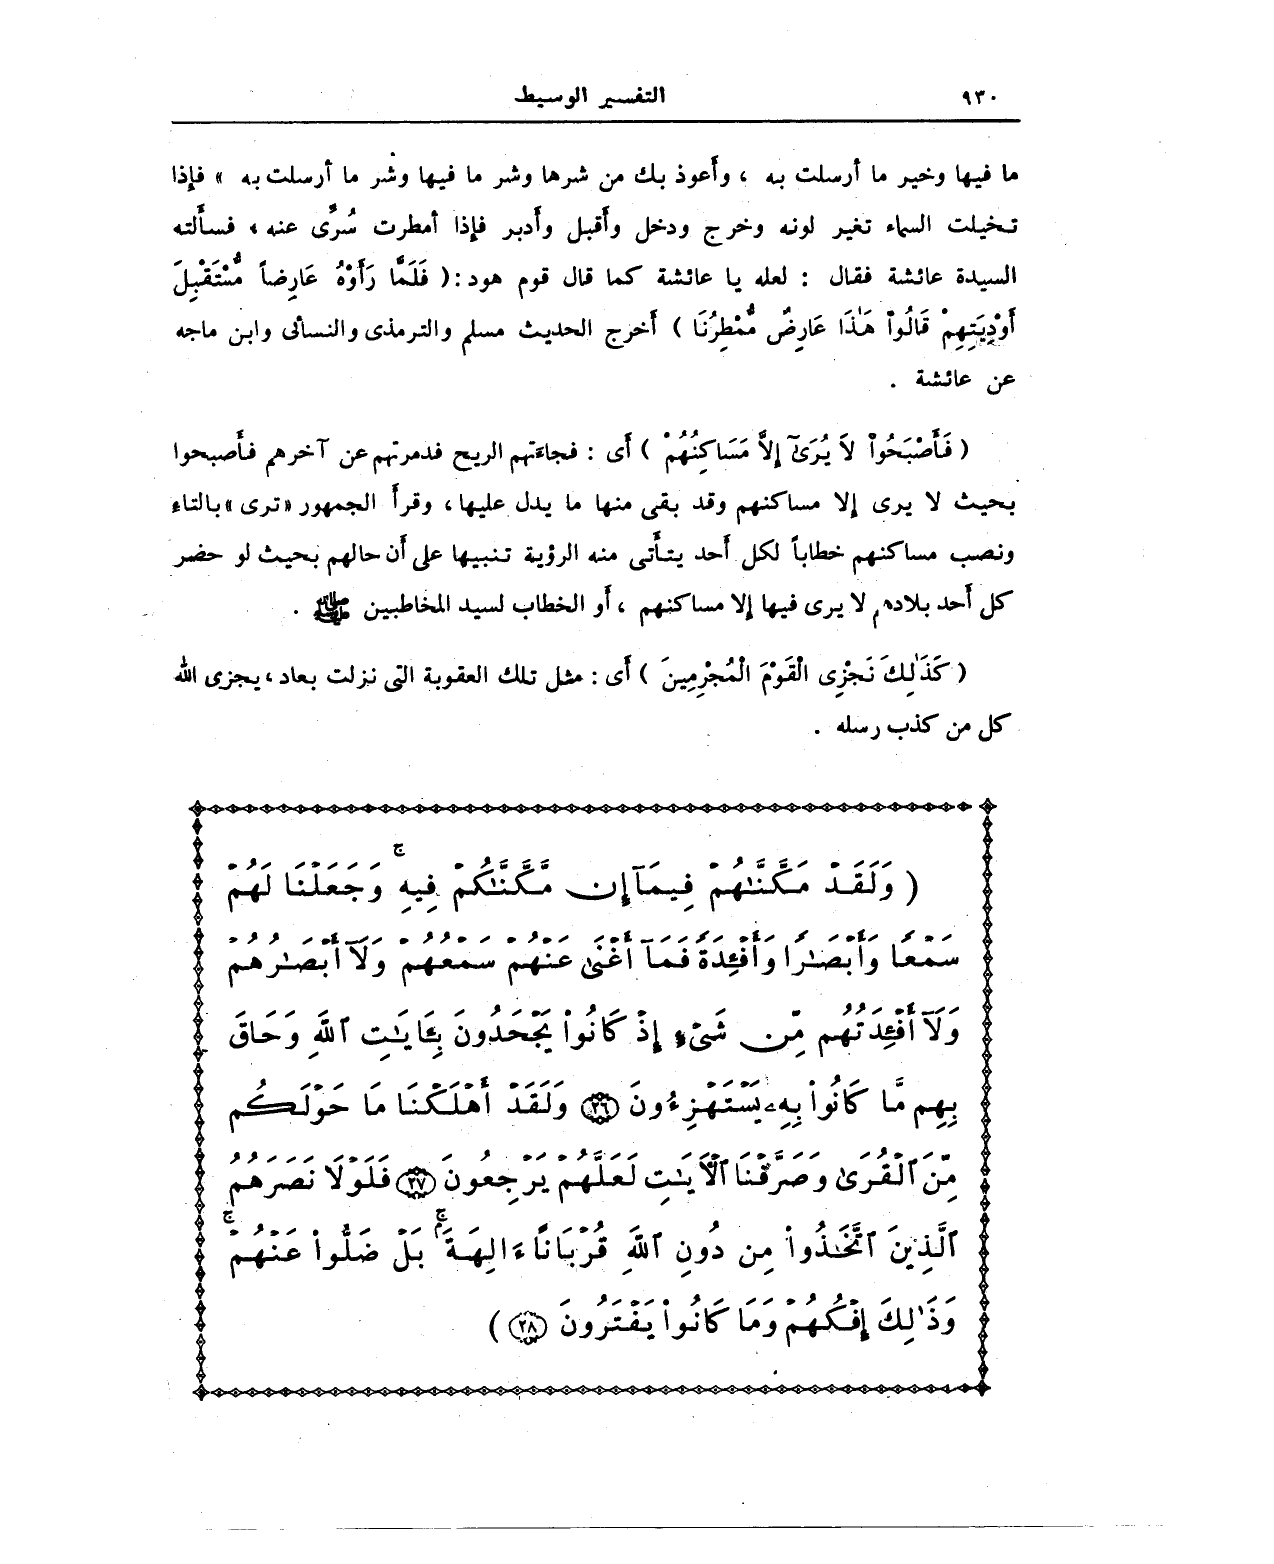 ٩٣٠
التفسير الوسيط
ما فيها وخير ما أرسلت به ، وأعوذ بك من شرها وشر ما فيها وشر ما أرسلت به » فإذا
تخيلت السماء تغير لونه وخرج ودخل وأقبل وأدبر فإذا أمطرت سُرِّى عنه ، فسألته
السيدة عائشة فقال : لعله يا عائشة كما قال قوم هود : ( فَلَمَّا رَأَوْهُ عَارِضاً مُّسْتَقْبِلَ
أَوْدِيَتِهِمْ قَالُواْ هَٰذَا عَارِضٌ مُّمْطِرُنَا ) أخرج الحديث مسلم والترمذى والنسائى وابن ماجه
عن عائشة .
( فَأَصْبَحُواْ لاَ يُرَىٰٓ إِلاَّ مَسَاكِنُهُمْ ) أى : فجاءتهم الريح فدمرتهم عن آخرهم فأصبحوا
بحيث لا يرى إلا مساكنهم وقد بقى منها ما يدل عليها ، وقرأ الجمهور «ترى» بالتاء
ونصب مساكنهم خطاباً لكل أحد يتأتى منه الرؤية تنبيها على أن حالهم بحيث لو حضر
كل أحد بلادهم لا يرى فيها إلا مساكنهم ، أو الخطاب لسيد المخاطبين ﷺ .
( كَذَٰلِكَ نَجْزِى الْقَوْمَ الْمُجْرِمِينَ ) أى : مثل تلك العقوبة التى نزلت بعاد ، يجزى الله
كل من كذب رسله .
( وَلَقَدْ مَكَّنَّٰهُمْ فِيمَآ إِن مَّكَّنَّٰكُمْ فِيهِ ۚ وَجَعَلْنَا لَهُمْ
سَمْعًا وَأَبْصَٰرًا وَأَفْـِٔدَةً فَمَآ أَغْنَىٰ عَنْهُمْ سَمْعُهُمْ وَلَآ أَبْصَٰرُهُمْ
وَلَآ أَفْـِٔدَتُهُم مِّن شَىْءٍ إِذْ كَانُوا۟ يَجْحَدُونَ بِـَٔايَٰتِ ٱللَّهِ وَحَاقَ
بِهِم مَّا كَانُوا۟ بِهِۦ يَسْتَهْزِءُونَ ٢٦ وَلَقَدْ أَهْلَكْنَا مَا حَوْلَكُم
مِّنَ ٱلْقُرَىٰ وَصَرَّفْنَا ٱلْآيَٰتِ لَعَلَّهُمْ يَرْجِعُونَ ٢٧ فَلَوْلَا نَصَرَهُمُ
ٱلَّذِينَ ٱتَّخَذُوا۟ مِن دُونِ ٱللَّهِ قُرْبَانًا ءَالِهَةَۢ ۖ بَلْ ضَلُّوا۟ عَنْهُمْ ۚ
وَذَٰلِكَ إِفْكُهُمْ وَمَا كَانُوا۟ يَفْتَرُونَ ٢٨ )